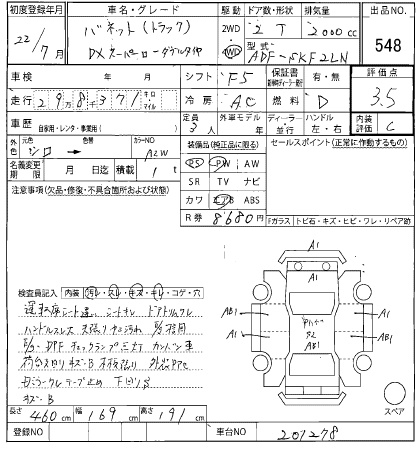 初度登録年月 車名・グレード 駆動 ドア数・形状 排気量 出品NO.
22/7月 バネット(トラック) 2WD 4WD 2 T 2000cc 548
DXスーパーローダブルタイヤ 型式 ADF-SKF2LN
車検 年 月 シフト F5 保証書 有・無 評価点
走行 29万8千371 キロ マイル 冷房 AC 燃料 D 3.5
車歴 自家用・レンタ・事業用( ) 定員 3人 外車モデル 年 ディーラー・並行 ハンドル 左・右 内装評価 C
外色 元色 シロ → 色替 カラーNO A2W 装備品(純正品に限る) セールスポイント(正常に作動するもの)
名義変更期限 月 日迄 積載 1t PS PW AW
注意事項(欠品・修復・不具合箇所および状態) SR TV ナビ
カワ エアB ABS
R券 8680円 Fガラス トビ石・キズ・ヒビ・ワレ・リペア跡
A1
A1
検査員記入 内装 汚レ・スレ・キズ・キレ・コゲ・穴
AB1 AB1
A1 A1
運転席シート ドアトリムクレ
ハンドルスレ大
DPF チェックランプ点灯 カンバン車
AB1
キズB
スペア
長さ 460cm 幅 169cm 高さ 191cm
登録NO 車台NO 201278